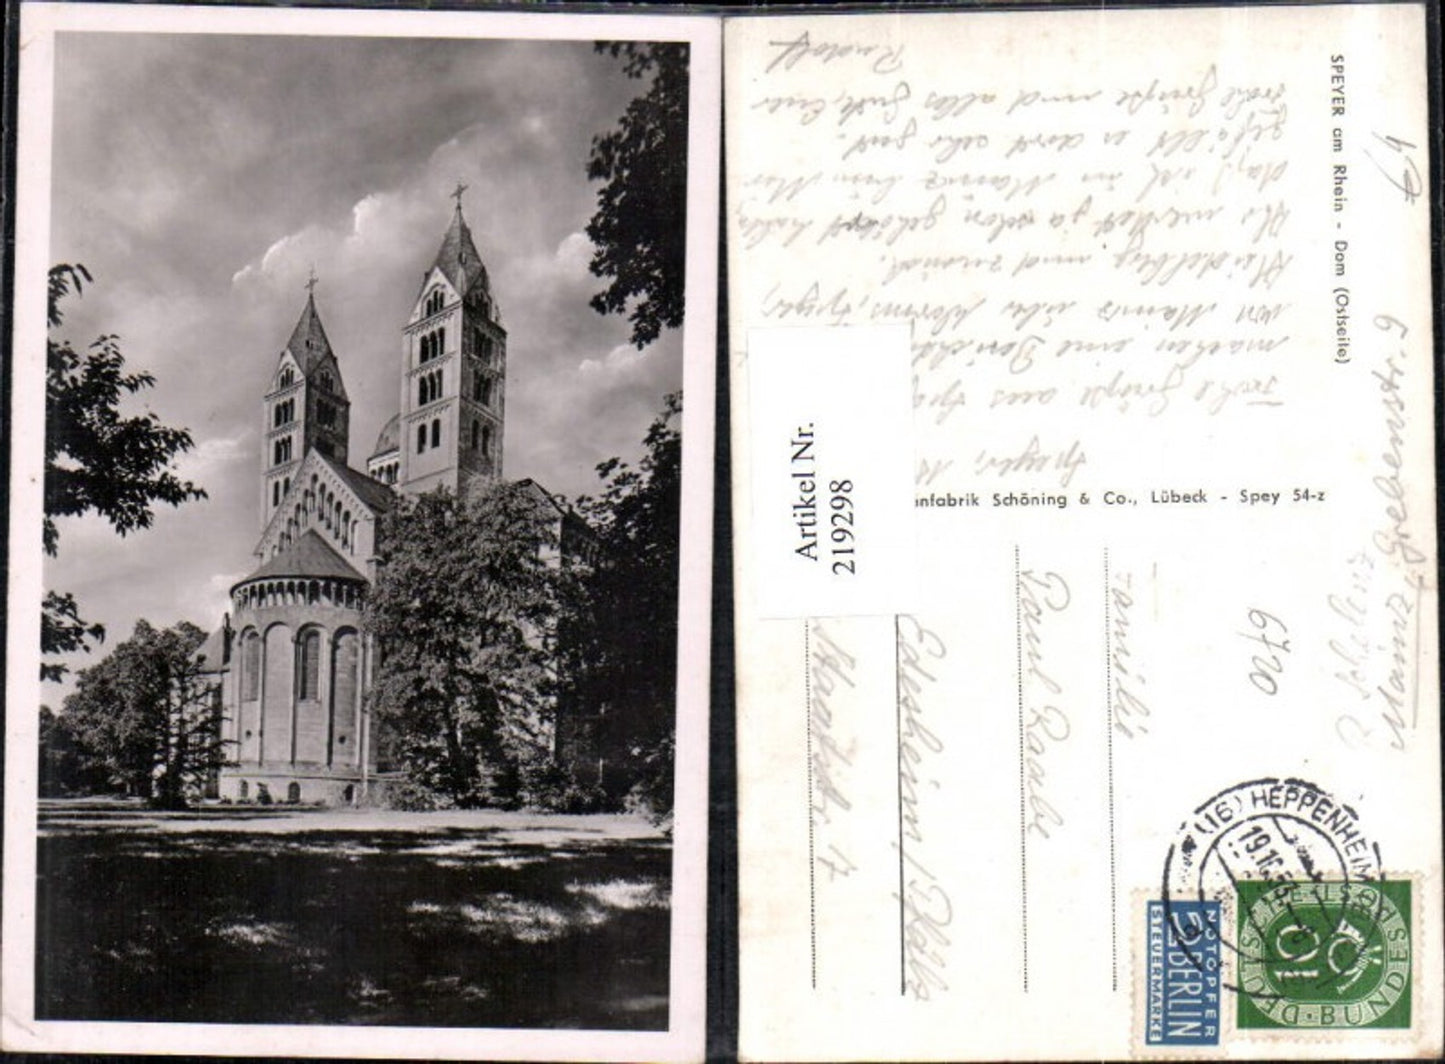 SPEYER am Rhein - Dom (Ostseite)
Rudolf
Frohe Grüße und alles Gute, Euer
gefällt es dort sehr gut.
daß ich in Mainz bin. Mir
Ihr werdet ja schon gehört habe,
Heidelberg und zurück.
von Mainz über Worms, Speyer,
machen eine
Frohe Grüße aus
Speyer,
nfabrik Schöning & Co., Lübeck - Spey 54-z
Artikel Nr.
219298
R. Schlenz
Mainz, Grebenstr. 9
6720
Familie
Paul Raabe
Edesheim / Pfalz
Staatsstr. 17
(16) HEPPENHEIM
NOTOPFER
2 BERLIN
STEUERMARKE
DEUTSCHE BUNDESPOST
10